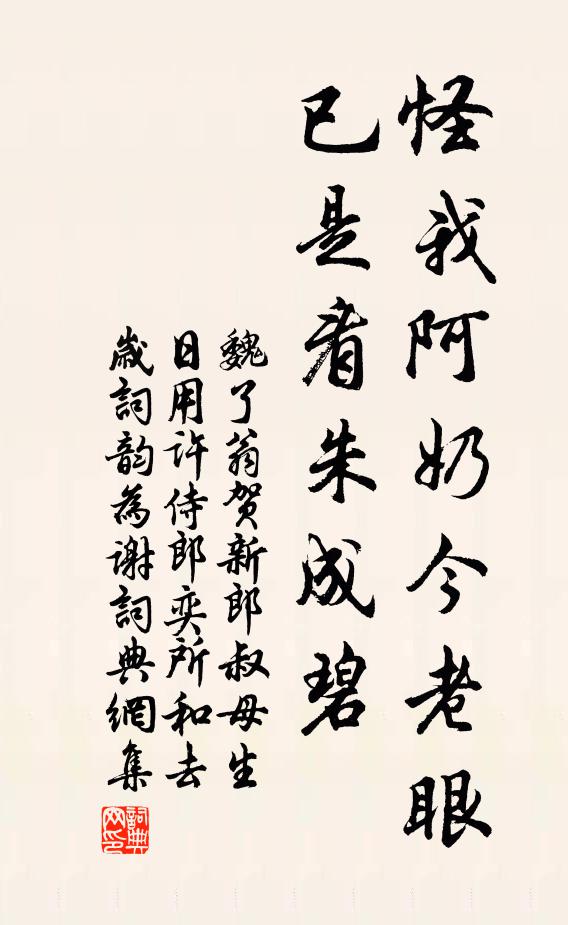 怪我阿奶今老眼
已是看朱成碧
魏了翁贺新郎叔母生
日用许侍郎奕所和去
歲詞韵為谢詞典網集
詞典网印